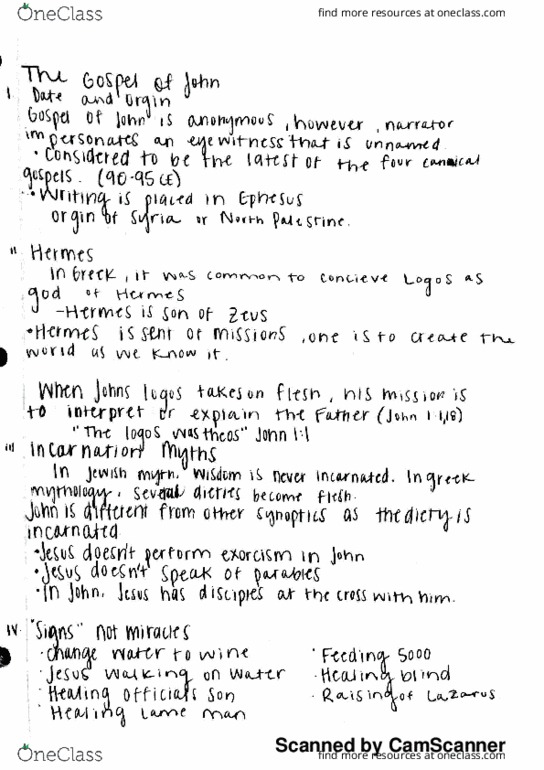 OneClass
find more resources at oneclass.com
The Gospel of John
I. Date and orgin
Gospel of John is anonymous, however, narrator
impersonates an eyewitness that is unnamed
• Considered to be the latest of the four cannical
gospels. (90-95 CE)
• Writing is placed in Ephesus
orgin of Syria or North Palestine.
II Hermes
In Greek, it was common to concieve Logos as
god of Hermes
- Hermes is son of Zeus
• Hermes is sent of missions, one is to create the
world as we know it.
When Johns logos takes on flesh, his mission is
to interpret or explain the Father (John 1:1,18)
"The logos was theos" John 1:1
III Incarnation Myths
In Jewish myth, wisdom is never incarnated. In greek
mythology, several dieties become flesh.
John is different from other synoptics as the diety is
incarnated
• Jesus doesn't perform exorcism in John
• Jesus doesn't speak of parables
• In John, Jesus has disciples at the cross with him.
IV. "Signs" not miracles
• change water to wine
• Jesus walking on water
• Healing officials son
• Healing lame man
• Feeding 5000
• Healing blind
• Raising of Lazarus
Scanned by CamScanner
OneClass
find more resources at oneclass.com